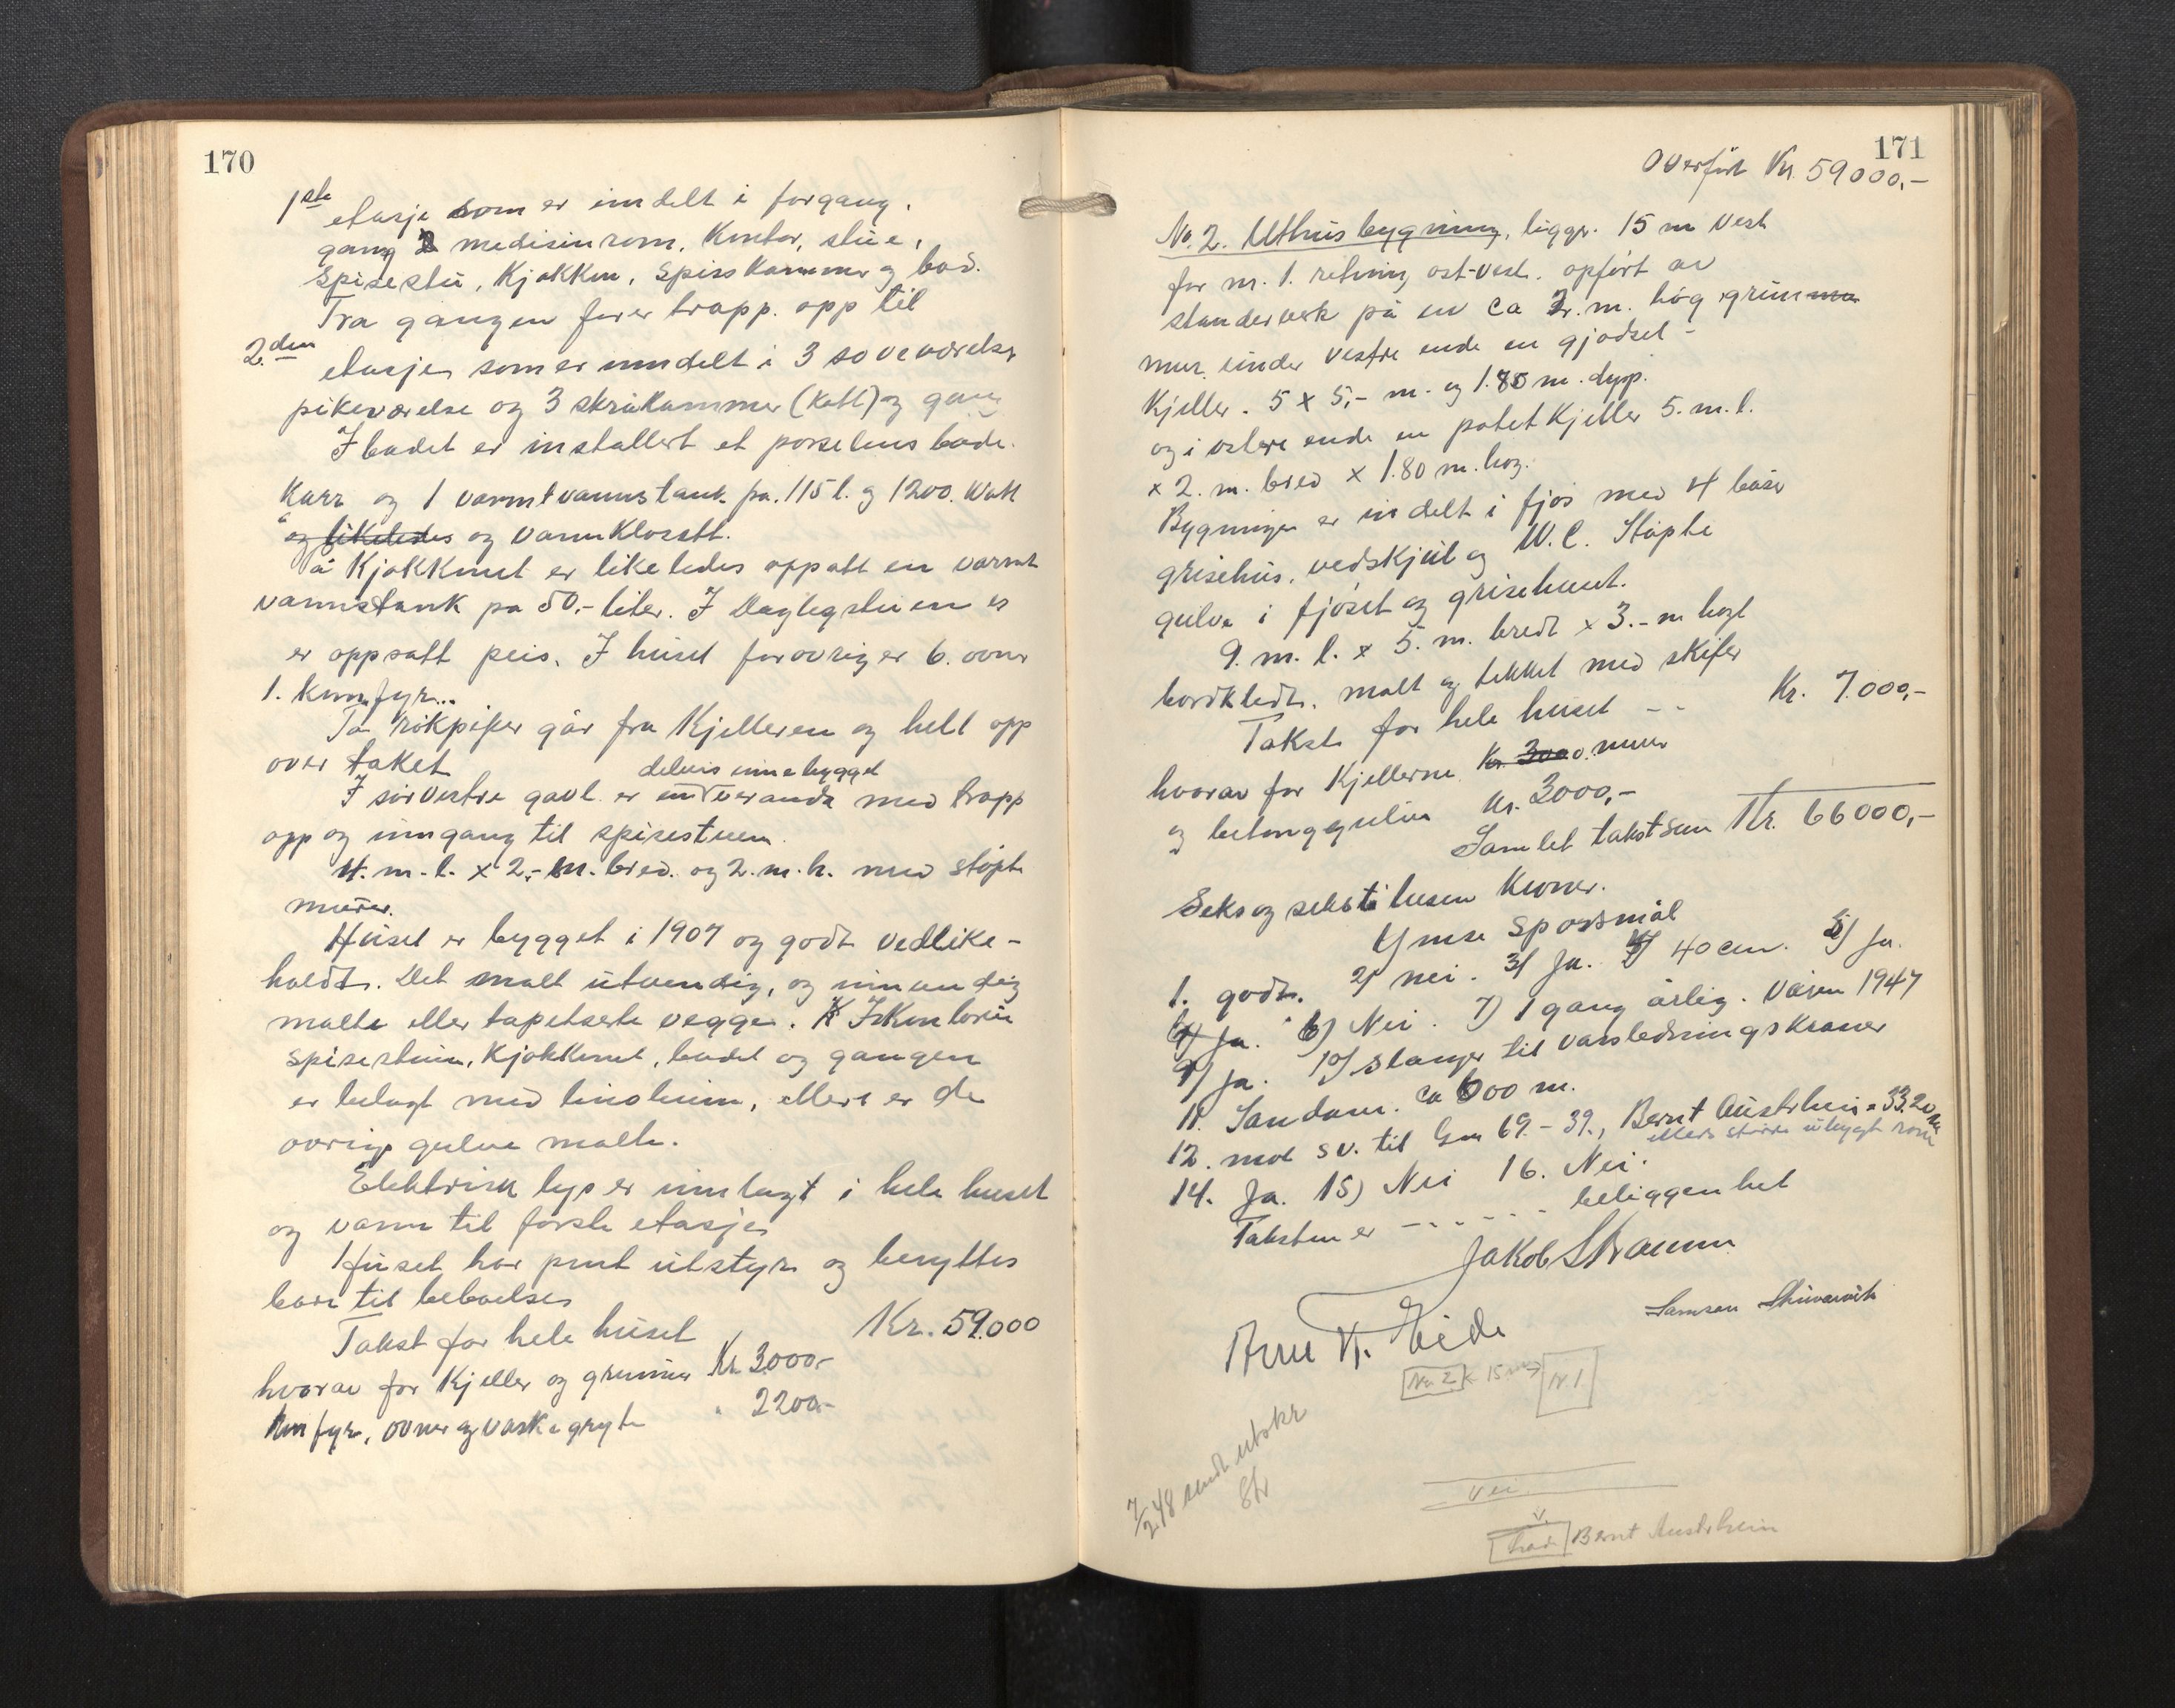 170
1ste etasje som er inndelt i forgang,
gang 2 medisinrom, Kontor, stue,
spisestu, Kjøkken, Spisskammer og bad.
Fra gangen fører trapp. opp til
2.den etasje som er inndelt i 3 soveværelser
pikeværelse og 3 skråkammer (kott) og gang
I badet er installert et porselens bade-
Karr og 1 varmtvannstank på 115 l. og 1200. Watt
og likeledes og vannklosett.
På Kjøkkenet er likeledes oppsatt en varmt
vannstank på 50,- liter. I Dagligstuen er
er oppsatt peis. I huset forøvrig er 6. ovner
1. Komfyr...
To rökpiper går fra Kjelleren og helt opp
over taket
delvis innebygget
I sörvestre gavl er en veranda med trapp
opp og inngang til spisestuen.
4. m. l. x 2,- m. bred. og 2. m. h. med stöpte
murer.
Huset er bygget i 1907 og godt vedlike-
holdt. Det malt utvendig, og innvendig
malte eller tapetserte vegger. I Kontoret
spisestuen, Kjøkkenet, badet og gangen
er belagt med linoleum, ellers er de
øvrige gulve malte.
Elektrisk lys er innlagt i hele huset
og vann til første etasje
Huset har pent utstyr og benyttes
bare til beboelse
Takst for hele huset Kr. 59.000
hvorav for Kjeller og grunmur Kr. 3000,-
Komfyr, ovner og vaskegryte " 2200,-
171
Overført Kr. 59000,-
No. 2. Uthusbygning, ligger. 15 m vest
for nr. 1. retning öst-vest. opført av
standerverk på en ca 2. m. høg grunn
mur. under vestre ende en gjødsel-
Kjeller. 5 x 5,- m. og 1.85 m. dyp.
og i østere ende en potetkjeller 5. m. l.
x 2. m. bred x 1.80 m. høg.
Bygningen er inndelt i fjøs med 4 båser
grisehus, vedskjul og W.C. Støpte
gulve i fjøset og grisehuset.
9. m. l. x 5. m. bredt x 3.- m høgt
bordkledt, malt og tekket med skifer
Takst for hele huset - - Kr. 7.000,-
hvorav for Kjellerne Kr. 3000 murer
og betonggulve Kr. 3000,-
Samlet takstsum Kr. 66000,-
Seksogsekstitusen Kroner.
Ymse Spørsmål
1. godt. 2) nei. 3) Ja. 4) 40 cm. 5) Ja.
6) Ja. 6) Nei. 7) 1 gang årlig. Våren 1947
9) Ja. 10) Slanger til vassledningskraner
11. Sandam. ca 600 m.
12. mot sv. til Gnr 69.-39., Bernt Austrheim = 33.20 m
ellers større ubygt rom
14. Ja. 15) Nei 16. Nei.
Taksten er - - - - - - beliggenhet
Jakob Straumm
Samson
Arne K. Eide
No 2 < 15 m > Nr. 1
7/2 48 sendt utskr
Str
Vei
V.
Bernt Austrheim